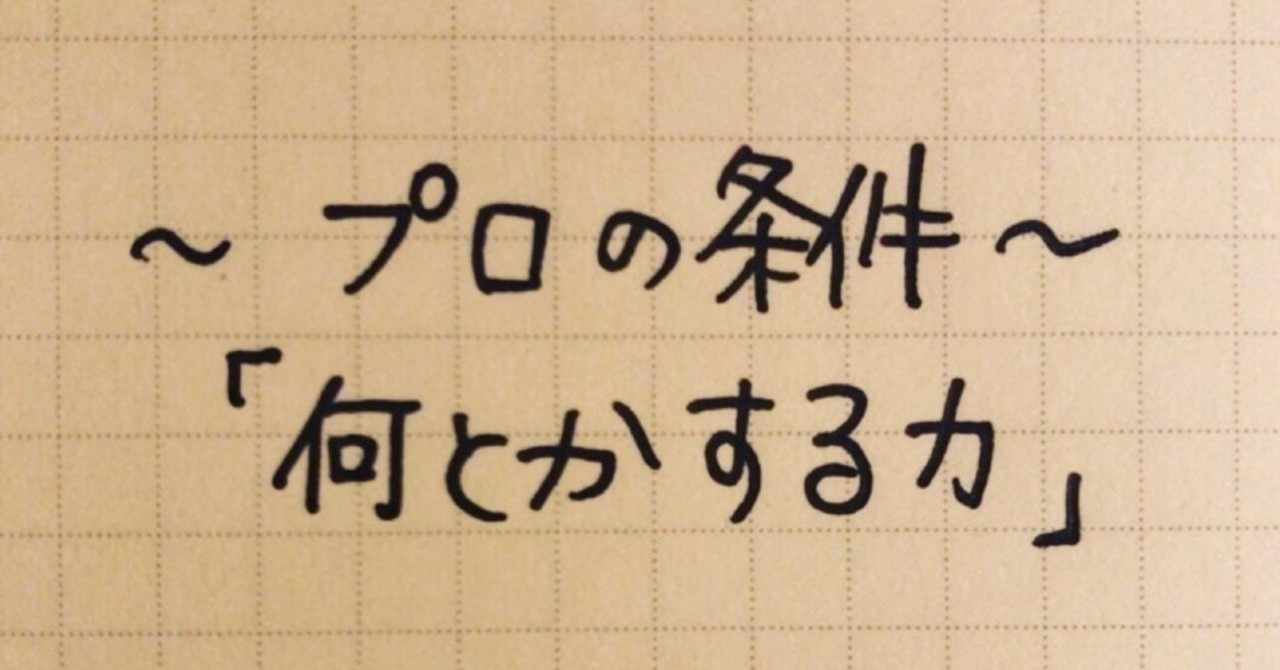 ～ プロの条件～
「何とかする力」